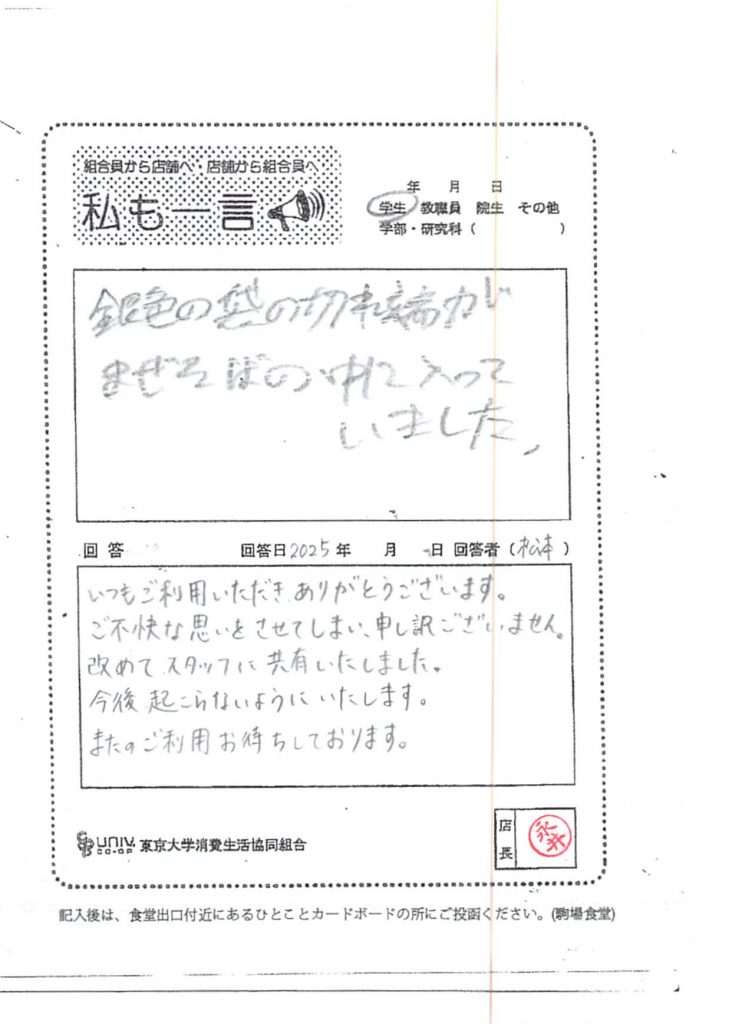 組合員から店舗へ・店舗から組合員へ
私も一言
年 月 日
学生 教職員 院生 その他
学部・研究科 ( )
銀色の袋の切れ端が
まぜそばの中に入って
いました。
回 答 回答日2025年 月 日 回答者 (松本)
いつもご利用いただきありがとうございます。
ご不快な思いをさせてしまい、申し訳ございません。
改めてスタッフに共有いたしました。
今後起こらないようにいたします。
またのご利用お待ちしております。
UNIV. CO-OP 東京大学消費生活協同組合
店長
永井
記入後は、食堂出口付近にあるひとことカードボードの所にご投函ください。(駒場食堂)